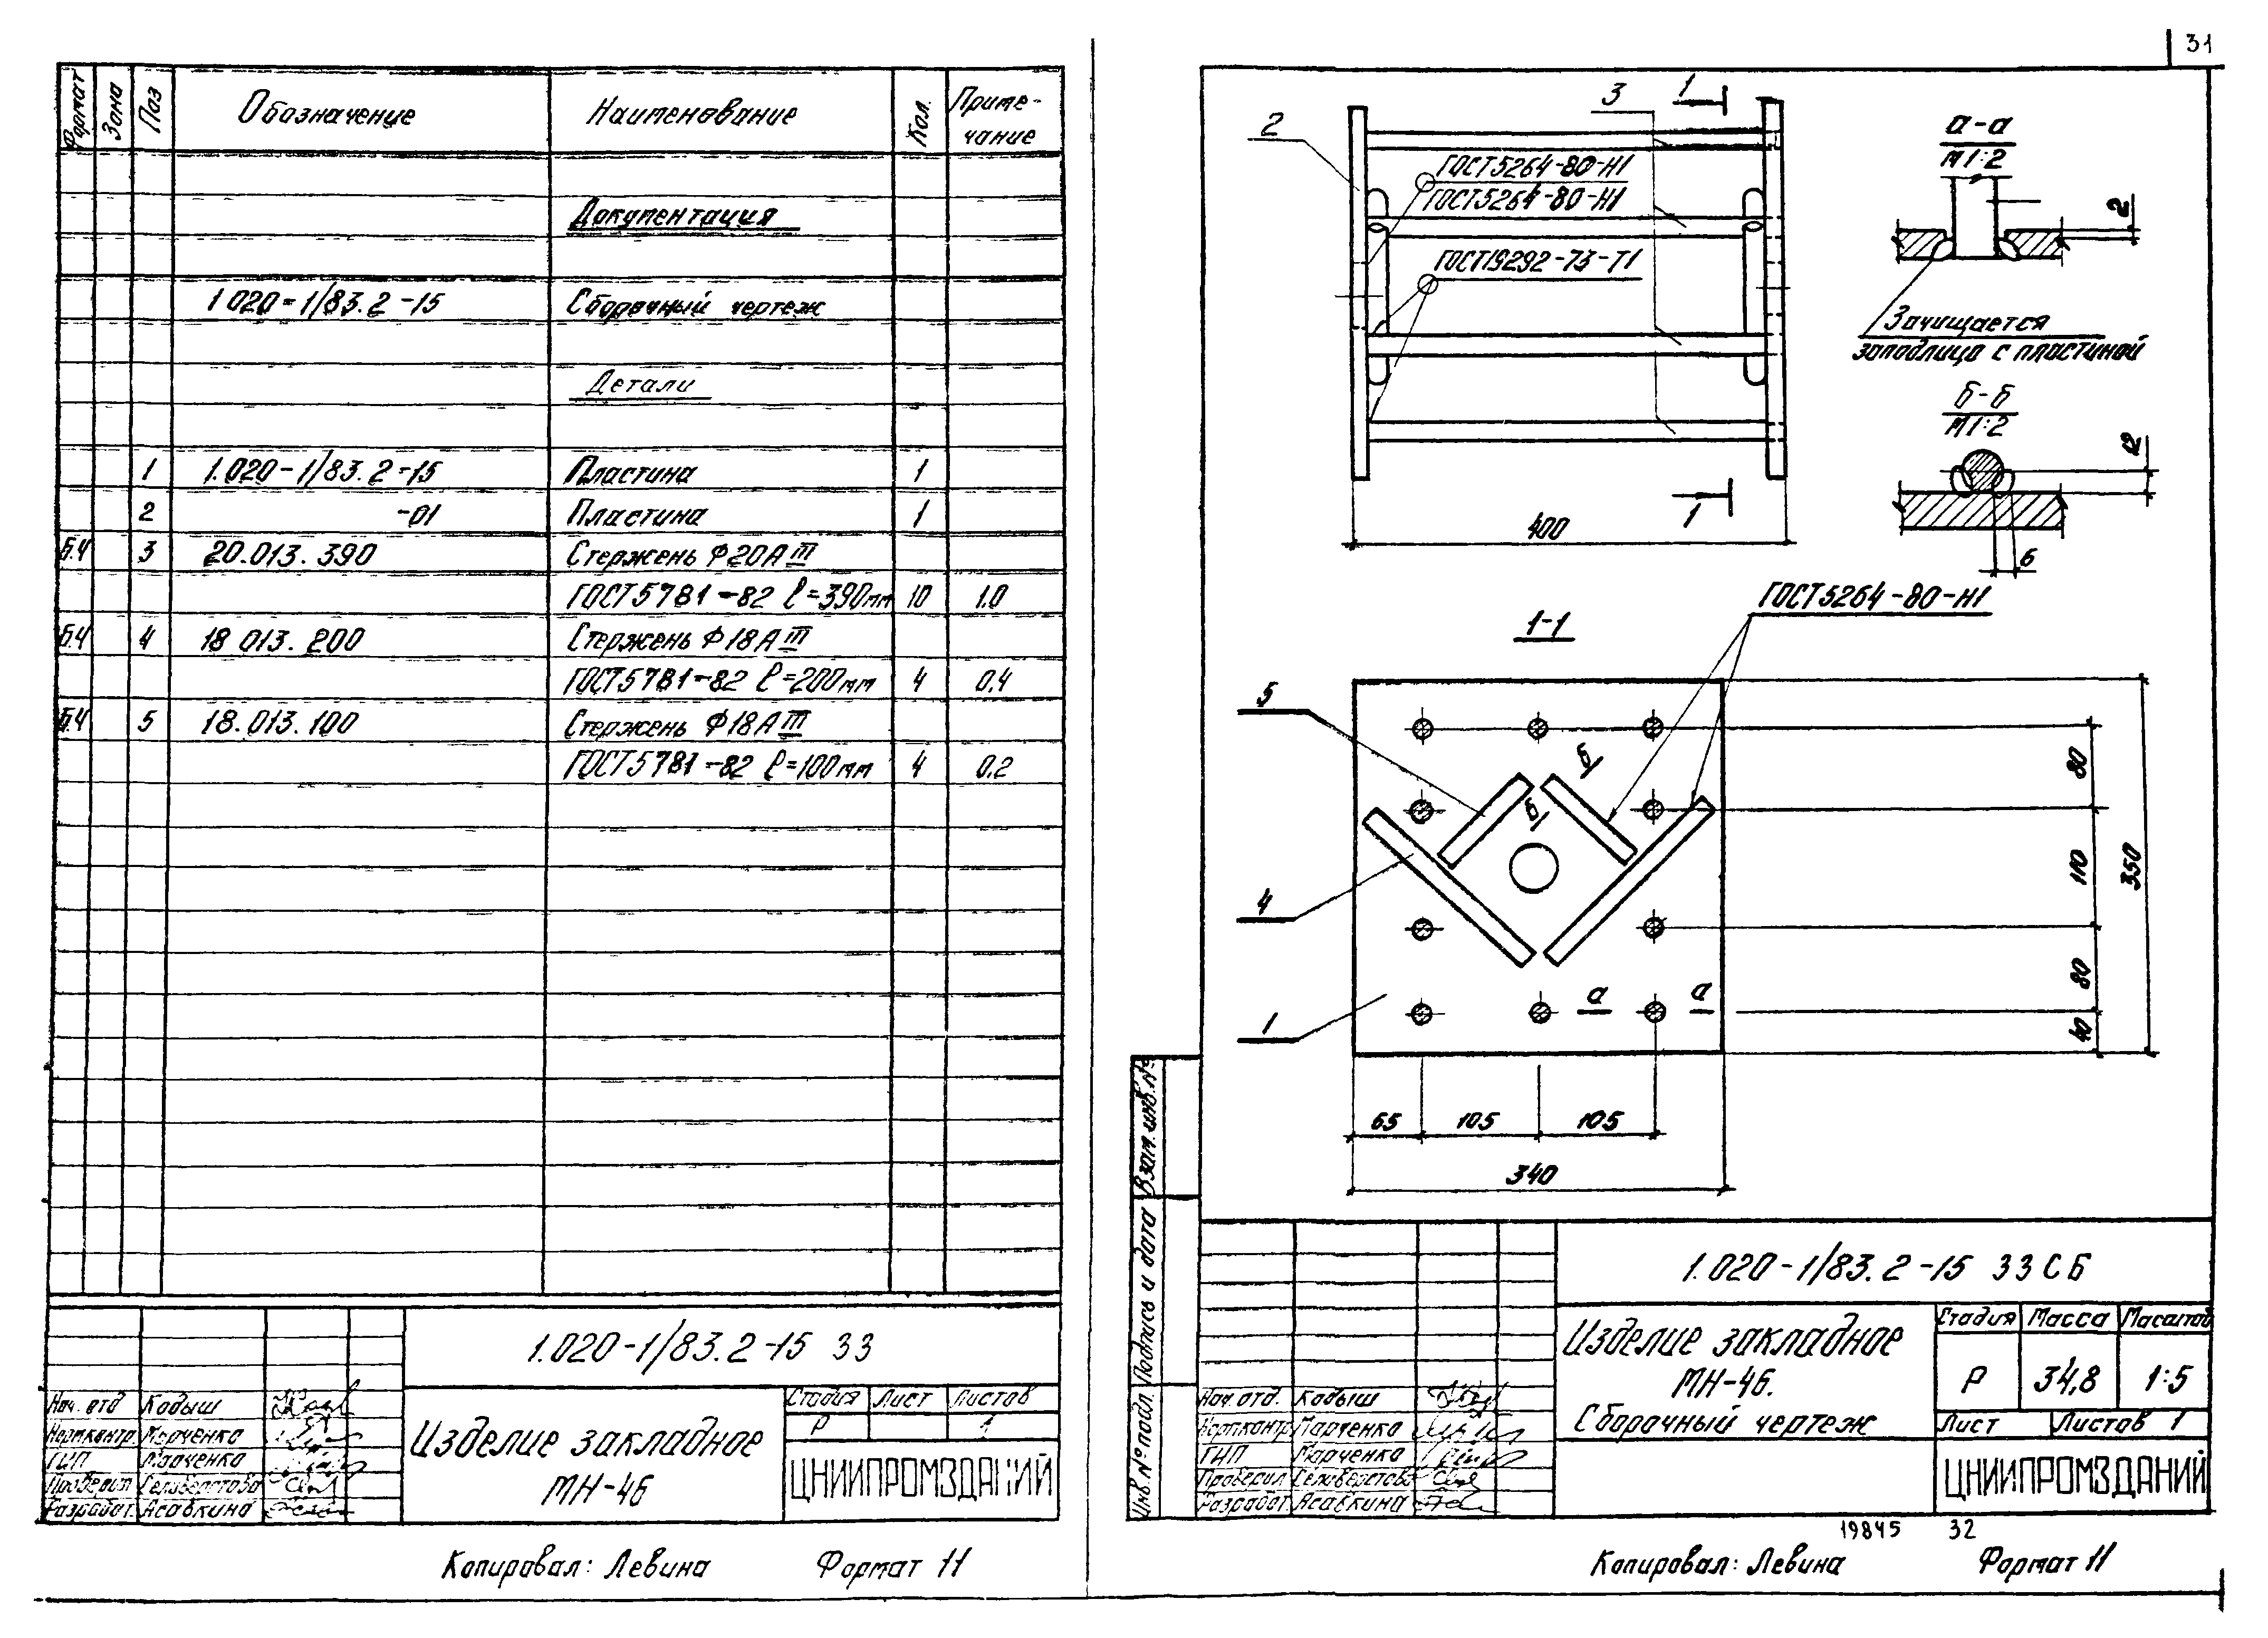 Формат Зона Поз Обозначение Наименование Кол. Приме-
чание
Документация
1.020-1/83.2-15 Сборочный чертеж
Детали
1 1.020-1/83.2-15 Пластина 1
2 -01 Пластина 1
Б.Ч 3 20.013.390 Стержень Ф20АIII
ГОСТ5781-82 ℓ=390мм 10 1.0
Б.Ч 4 18.013.200 Стержень Ф18АIII
ГОСТ5781-82 ℓ=200мм 4 0.4
Б.Ч 5 18.013.100 Стержень Ф18АIII
ГОСТ5781-82 ℓ=100мм 4 0.2
1.020-1/83.2-15 33
Нач. отд Кодыш
Нормконтр. Марченко
ГИП Марченко
Проверил Селиверстова
Разработ. Асавкина
Изделие закладное
МН-46
Стадия Лист Листов
Р 1
ЦНИИПРОМЗДАНИЙ
Копировал: Левина Формат 11
31
2
3
1
ГОСТ5264-80-Н1
ГОСТ5264-80-Н1
ГОСТ19292-73-Т1
1
400
а-а
М1:2
2
Зачищается
заподлицо с пластиной
Б-Б
М1:2
6
1-1
ГОСТ5264-80-Н1
5
4
1
Б
Б
а а
80
110
80
40
350
65 105 105
340
Взам. инв. №
Подпись и дата
Инв. № подл.
1.020-1/83.2-15 33СБ
Нач. отд. Кодыш
Нормконтр Марченко
ГИП Марченко
Проверил Селиверстова
Разработ. Асавкина
Изделие закладное
МН-46.
Сборочный чертеж
Стадия Масса Масштаб
Р 34,8 1:5
Лист Листов 1
ЦНИИПРОМЗДАНИЙ
19845 32
Копировал: Левина Формат 11